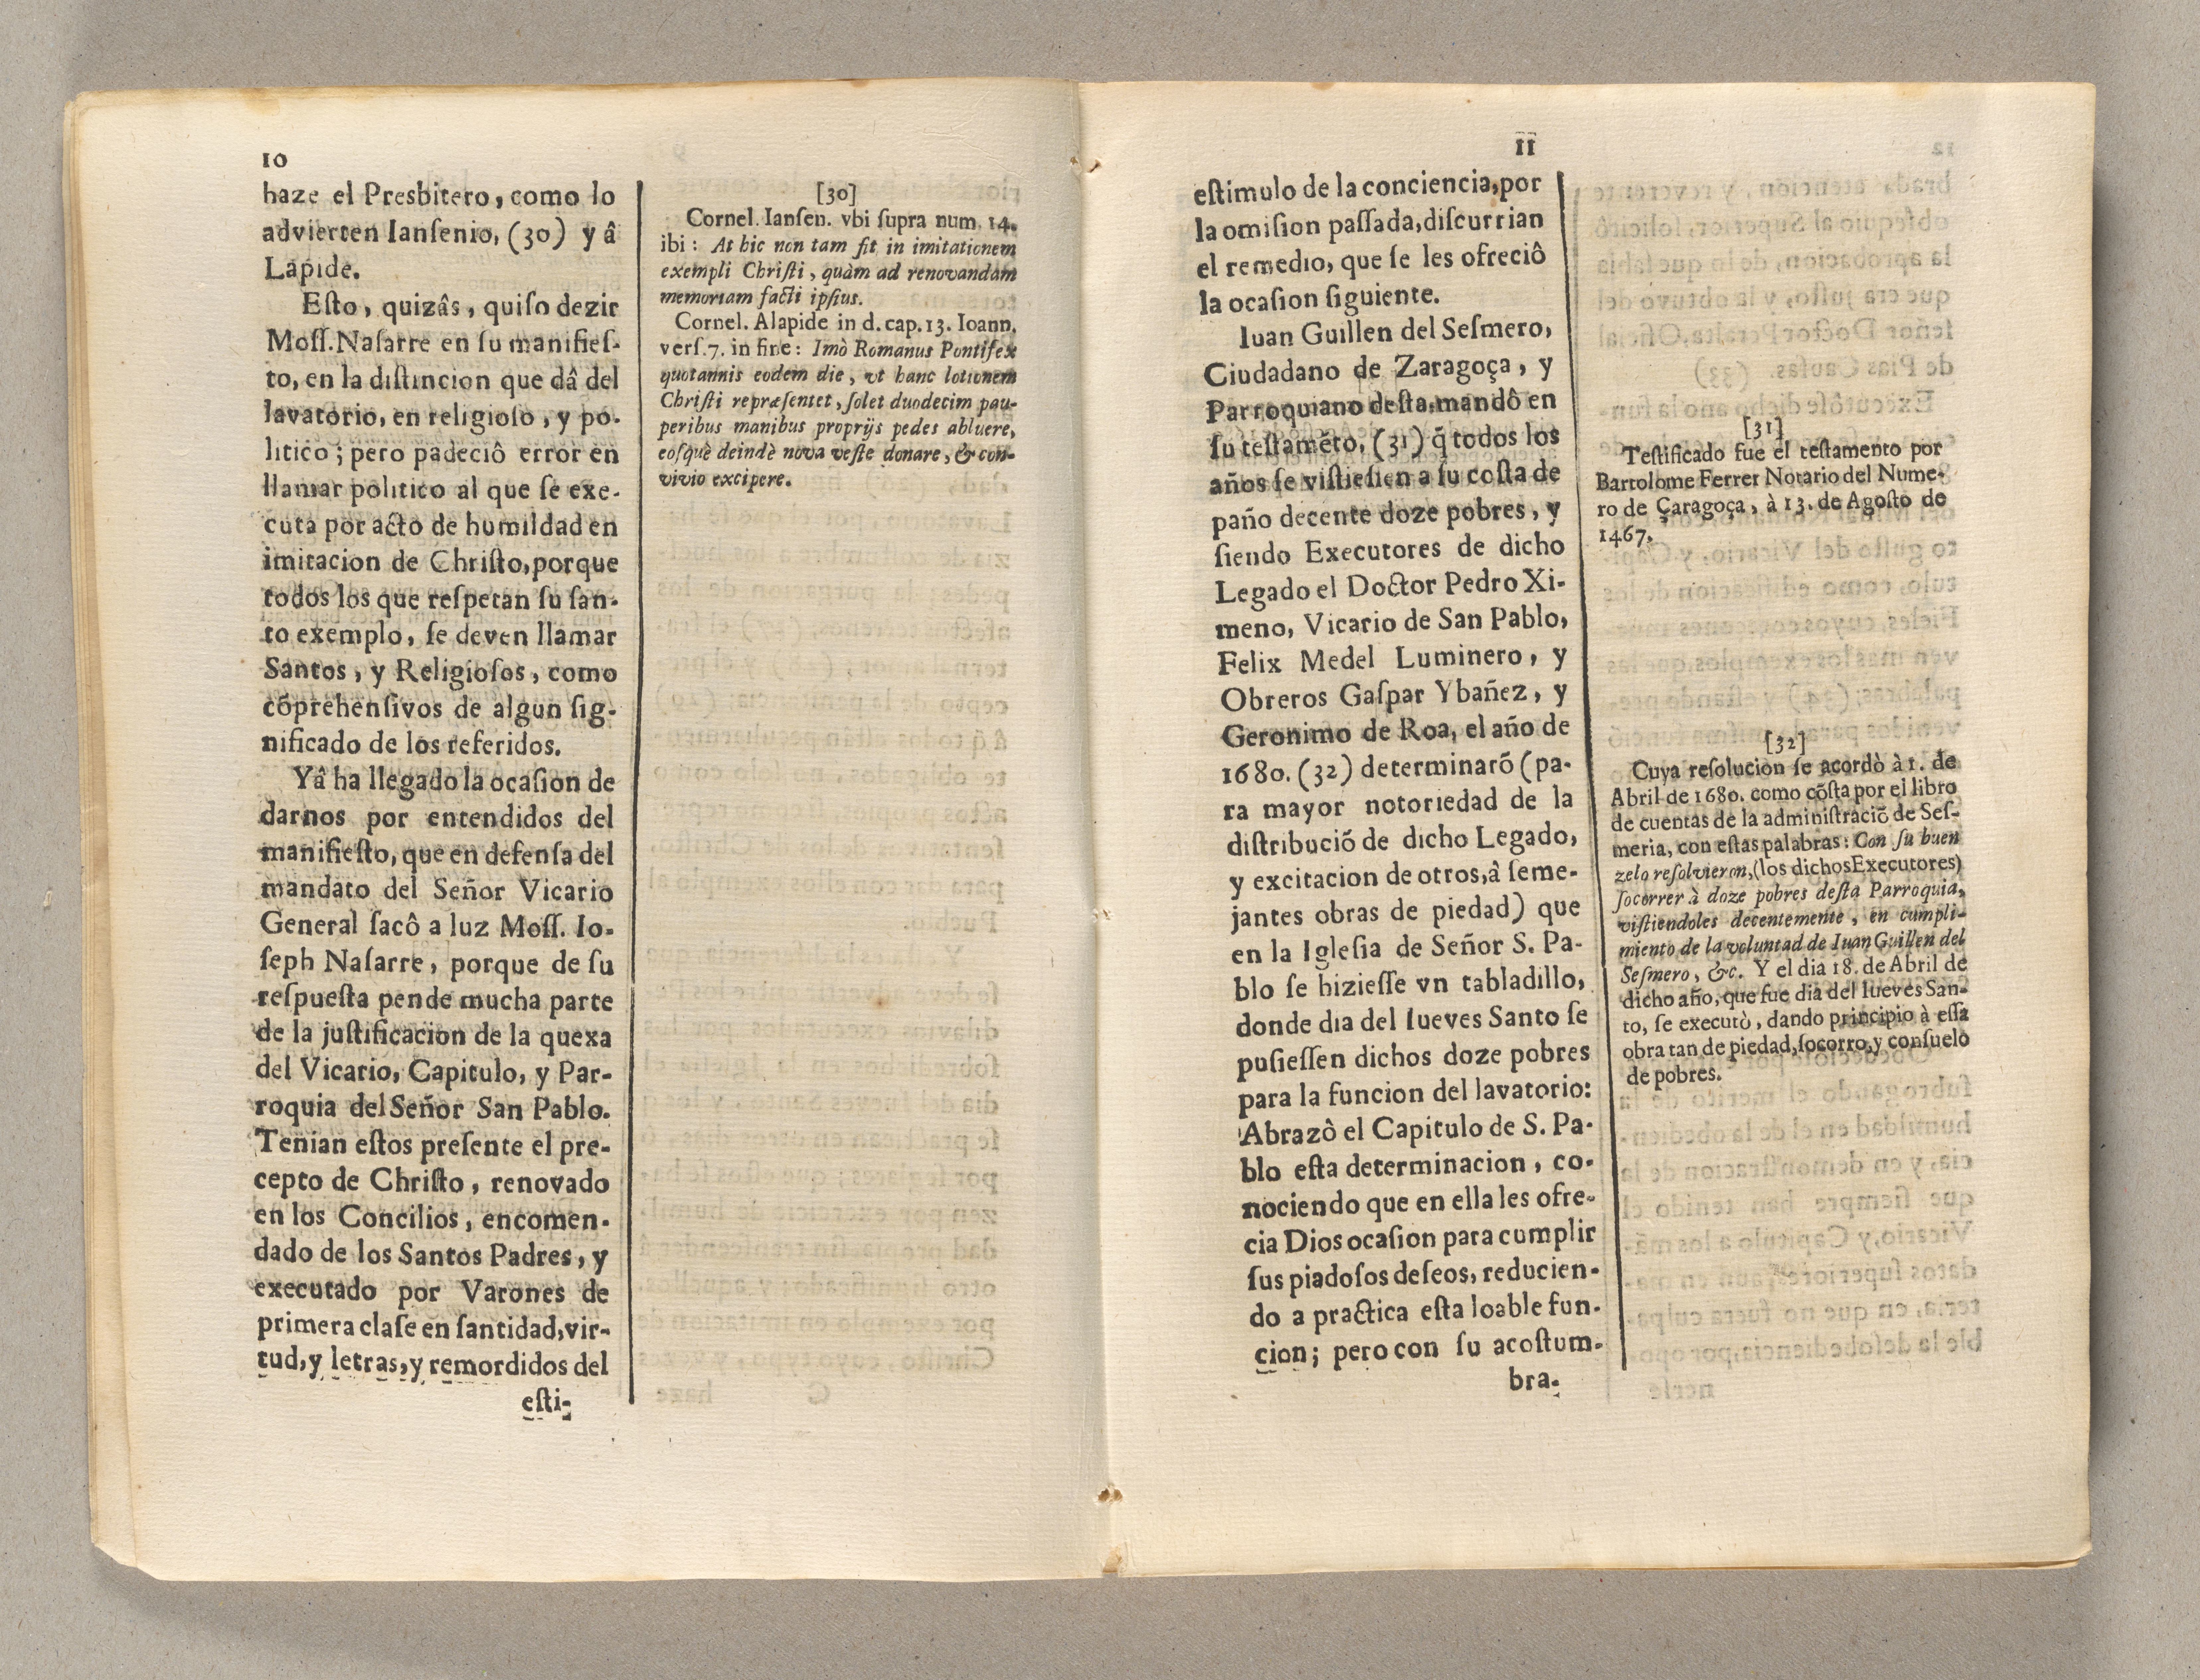 10
haze el Presbitero, como lo
advierten Ianſenio, (30) y â
Lapide.
Eſto, quizâs, quiſo dezir
Moſſ. Naſarre en ſu manifieſ-
to, en la diſtincion que dâ del
lavatorio, en religioſo, y po-
litico; pero padeciô error en
llamar politico al que ſe exe-
cuta por acto de humildad en
imitacion de Chriſto, porque
todos los que reſpetan ſu ſan-
to exemplo, ſe deven llamar
Santos, y Religioſos, como
cõprehenſivos de algun ſig-
nificado de los referidos.
Yâ ha llegado la ocaſion de
darnos por entendidos del
manifieſto, que en defenſa del
mandato del Señor Vicario
General ſacô a luz Moſſ. Io-
ſeph Naſarre, porque de ſu
reſpueſta pende mucha parte
de la juſtificacion de la quexa
del Vicario, Capitulo, y Par-
roquia del Señor San Pablo.
Tenian eſtos preſente el pre-
cepto de Chriſto, renovado
en los Concilios, encomen-
dado de los Santos Padres, y
executado por Varones de
primera claſe en ſantidad, vir-
tud, y letras, y remordidos del
eſti-
[30]
Cornel. Ianſen. vbi ſupra num. 14.
ibi: At hic non tam fit in imitationem
exempli Chriſti, quàm ad renovandam
memoriam facti ipſius.
Cornel. Alapide in d. cap. 13. Ioann.
verſ. 7. in fine: Imò Romanus Pontifex
quotannis eodem die, vt hanc lotionem
Chriſti repræſentet, ſolet duodecim pau-
peribus manibus proprijs pedes abluere,
eoſquè deindè nova veſte donare, & con-
vivio excipere.
11
eſtimulo de la conciencia, por
la omiſion paſſada, diſcurrian
el remedio, que ſe les ofreciô
la ocaſion ſiguiente.
Iuan Guillen del Seſmero,
Ciudadano de Zaragoça, y
Parroquiano deſta, mandô en
ſu teſtamẽto, (31) q̃ todos los
años ſe viſtieſien a ſu coſta de
paño decente doze pobres, y
ſiendo Executores de dicho
Legado el Doctor Pedro Xi-
meno, Vicario de San Pablo,
Felix Medel Luminero, y
Obreros Gaſpar Ybañez, y
Geronimo de Roa, el año de
1680. (32) determinarõ (pa-
ra mayor notoriedad de la
diſtribuciõ de dicho Legado,
y excitacion de otros, â ſeme-
jantes obras de piedad) que
en la Igleſia de Señor S. Pa-
blo ſe hizieſſe vn tabladillo,
donde dia del Iueves Santo ſe
puſieſſen dichos doze pobres
para la funcion del lavatorio:
Abrazô el Capitulo de S. Pa-
blo eſta determinacion, co-
nociendo que en ella les ofre-
cia Dios ocaſion para cumplir
ſus piadoſos deſeos, reducien-
do a practica eſta loable fun-
cion; pero con ſu acoſtum-
bra-
[31]
Teſtificado fue el teſtamento por
Bartolome Ferrer Notario del Nume-
ro de Çaragoça, à 13. de Agoſto de
1467.
[32]
Cuya reſolucion ſe acordò à 1. de
Abril de 1680. como cõſta por el libro
de cuentas de la adminiſtraciõ de Seſ-
meria, con eſtas palabras: Con ſu buen
zelo reſolvieron, (los dichos Executores)
ſocorrer à doze pobres deſta Parroquia,
viſtiendoles decentemente, en cumpli-
miento de la voluntad de Iuan Guillen del
Seſmero, &c. Y el dia 18. de Abril de
dicho año, que fue dia del Iueves San-
to, ſe executò, dando principio à eſſa
obra tan de piedad, ſocorro, y conſuelo
de pobres.